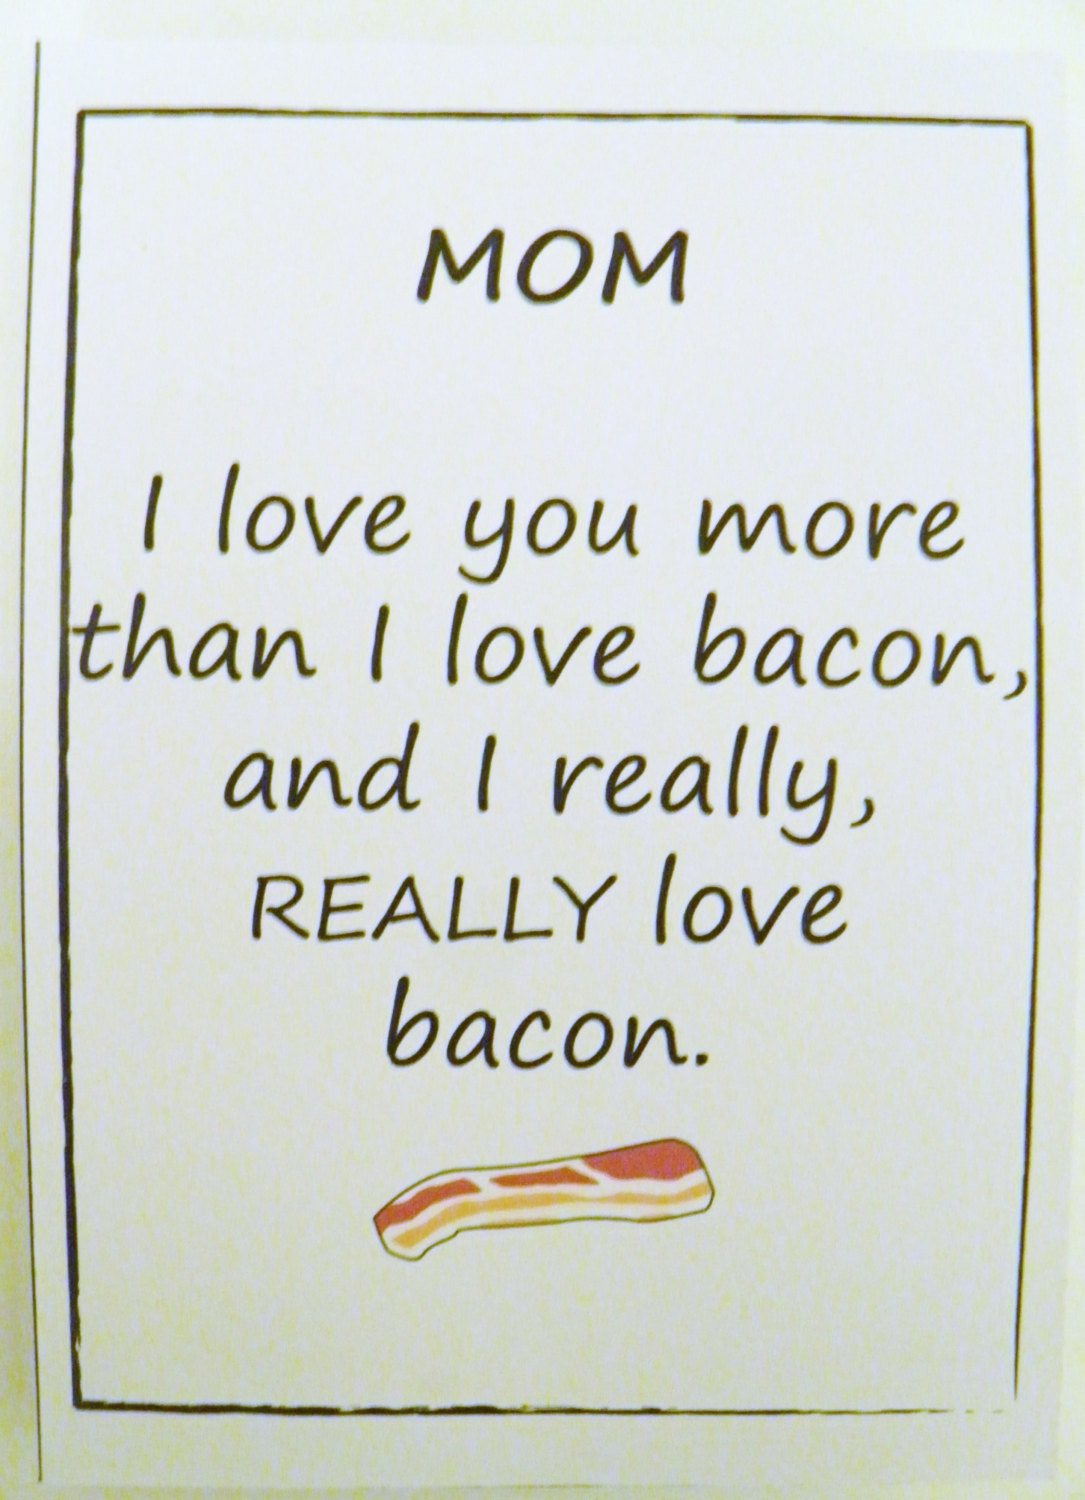 MOM
I love you more
than I love bacon,
and I really,
REALLY love
bacon.